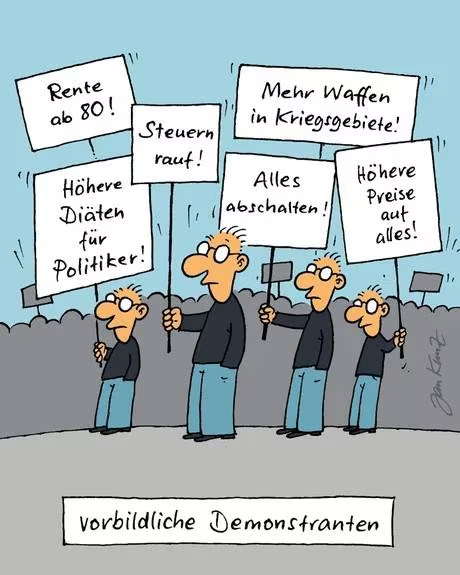 Rente
ab 80!
Steuern
rauf!
Mehr Waffen
in Kriegsgebiete!
Höhere
Diäten
für
Politiker!
Alles
abschalten!
Höhere
Preise
auf
alles!
Jan Kunz
vorbildliche Demonstranten